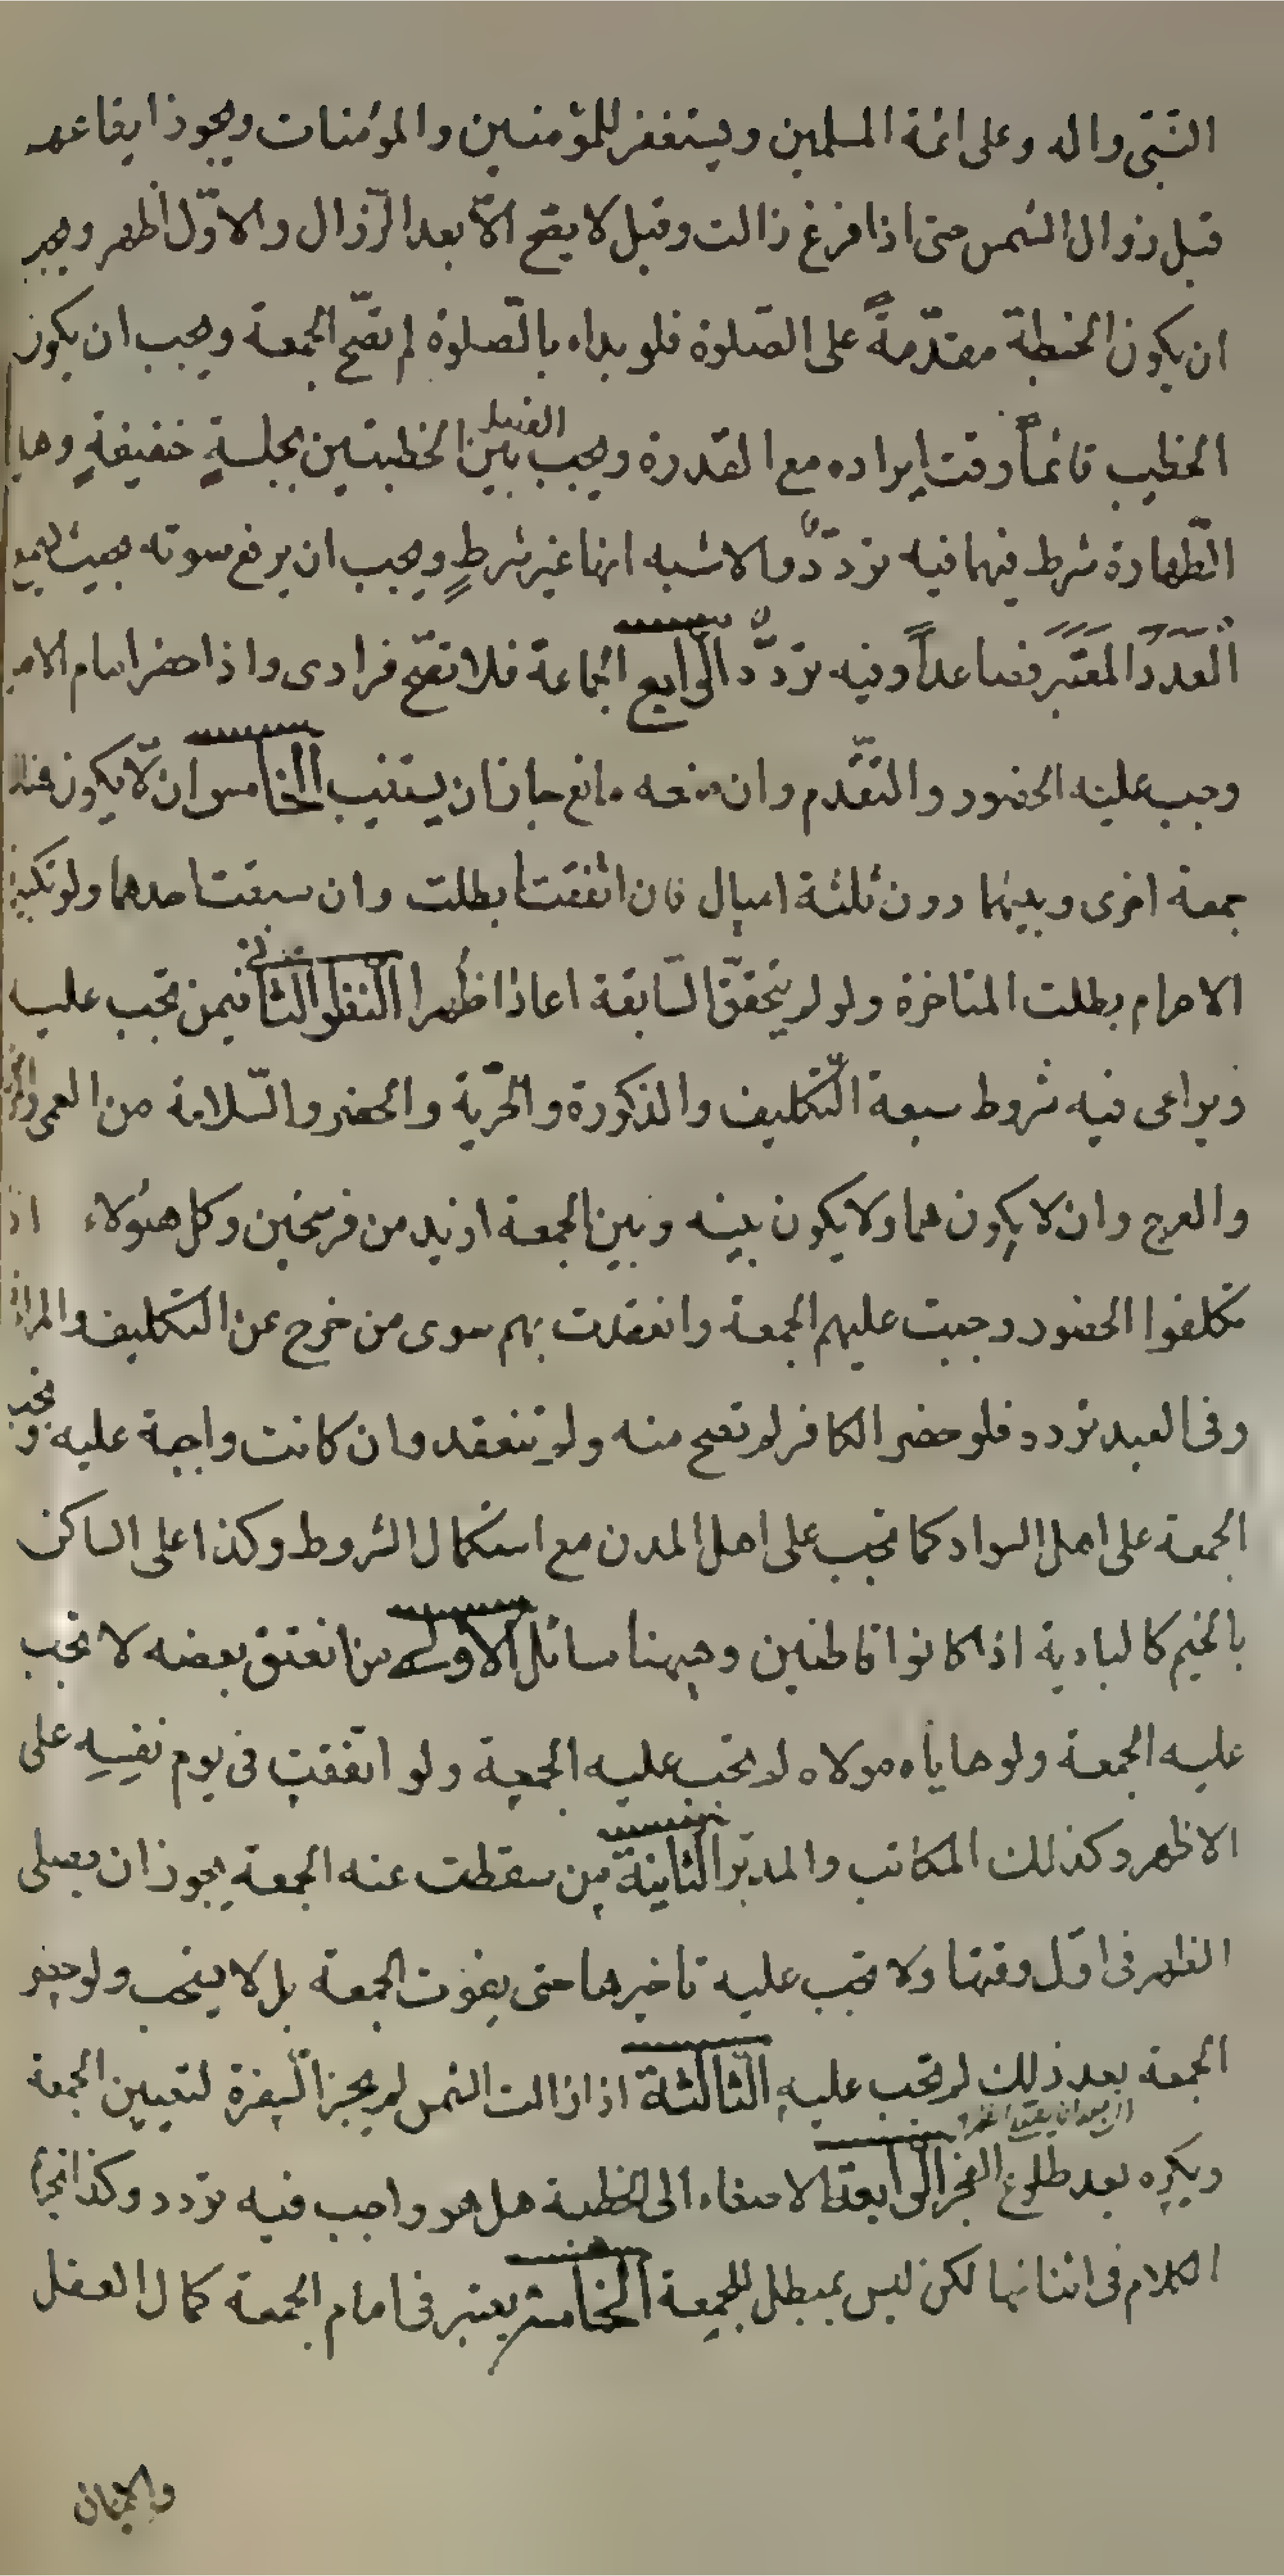 النّبّى واله وعلى ائمة المسلمين ويستغفر للمؤمنين والمؤمنات ويجوز ايقاعهم
قبل زوال الشمس حتى اذا فرغ زالت وقيل لا يصح الّا بعد الزّوال والاوّل اظهر ويجب
ان يكون الخطبة مقدّمةً على الصّلوة فلو بداء بالصّلوة لم تصّح الجمعة ويجب ان يكون
الخطيب قائماً وقت ايراده مع القدرة ويجب الفصل بين الخطبتين بجلسةٍ خفيفةٍ وهل
الطّهارة شرط فيهما فيه تردّدٌ والاشبه انها غير شرطٍ ويجب ان يرفع صوته بحيث يسمع
العدد المعتبر فصاعداً وفيه تردّدٌ الرّابع الجماعة فلا تصّح فرادى واذا حضر امام الاصل
وجب عليه الحضور والتّقدّم وان منعه مانع جاز ان يستنيب الخامس ان لّا يكون هناك
جمعة اخرى وبينهما دون ثلثة اميال فان اتّفقتا بطلت وان سبقت احدهما ولو بتكبيرة
الاحرام بطلت المتاخرة ولو لم يتحقّق السّابقة اعادا ظُهرا النّظر الثّانى فيمن تجب عليه
ويراعى فيه شروط سبعة التّكليف والذكورة والحّرية والحضر والسّلامة من العمى والمرض
والعرج وان لا يكون هما ولا يكون بينه وبين الجمعة ازيد من فرسخين وكل هئولاء اذا
تكلفوا الحضور وجبت عليهم الجمعة وانعقدت بهم سوى من خرج عن التكليف والمراة
وفى العبد تردد فلو حضر الكافر لم تصح منه ولم تنعقد وان كانت واجبة عليه وتجب
الجمعة على اهل السواد كما تجب على اهل المدن مع استكمال الشروط وكذا على الساكن
بالخيم كالبادية اذا كانوا قاطنين وهيهنا مسائل الاولى من انعتق بعضه لا تجب
عليه الجمعة ولو هاياه مولاه لم تجب عليه الجمعة ولو اتّفقت فى يوم نفسِهِ على
الاظهر وكذلك المكاتب والمدبّر الثانية من سقطت عنه الجمعة يجوز ان يصلى
الظهر فى اوّل وقتها ولا تجب عليه تاخيرها حتى يفوت الجمعة بل لا يستحب ولو حضر
الجمعة بعد ذلك لم تجب عليه الثّالثة اذا زالت الشمس لم يجز السّفرة لتعيين الجمعة
ويكره بعد طلوع الفجر الرّابعة الاصغاء الى الخطبة هل هو واجب فيه تردد وكذا تحريم
الكلام فى اثنائها لكن ليس بمبطل للجمعة الخامسة يعتبر فى امام الجمعة كمال العقل
والايمان